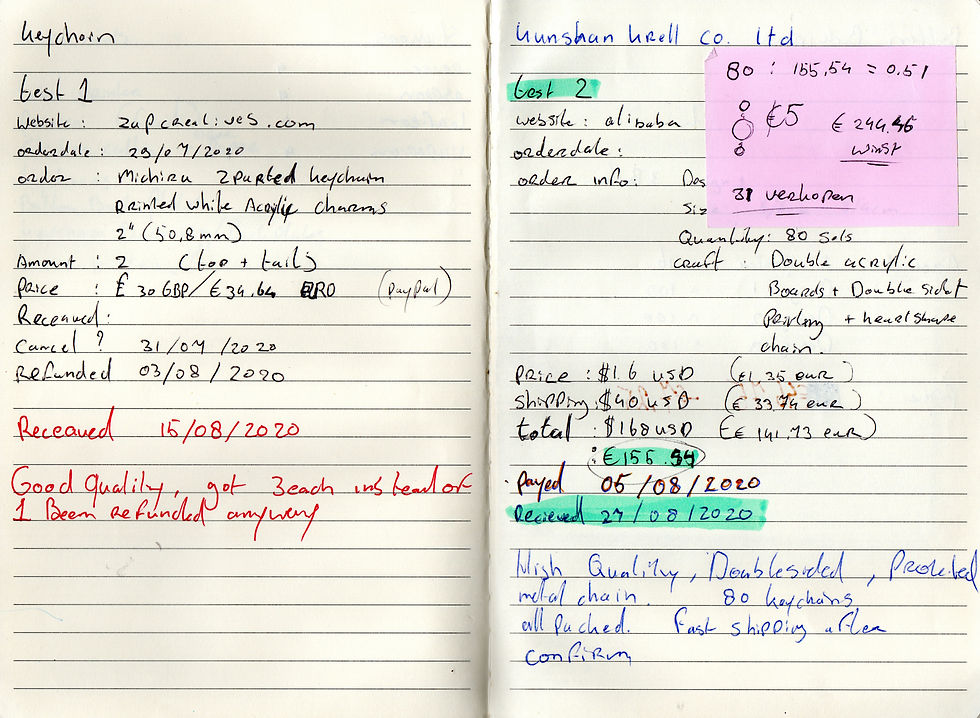 keychain
test 1
website : zapcreatives.com
orderdate : 29/07/2020
order : Michiru 2parted keychain
Printed white Acrylic charms
2" (50,8mm)
Amount : 2 (top + tail)
Price : £ 30 GBP/€34.64 EURO (PayPal)
Receaved:
Cancel ? 31/07/2020
Refunded 03/08/2020
Receaved 15/08/2020
Good Quality, got 3each instead of
1 Been refunded anyway
kunshan krell co. ltd
test 2
website : alibaba
orderdate :
order info: Des
Siz
Quantity: 80 sets
craft : Double acrylic
Boards + Double sidet
Printing + heartshape
chain.
Price : $1.6 USD (€1.35 eur)
Shipping : $40 USD (€ 33.74 eur)
total : $168USD (€€ 141.73 eur)
: €155.54
Payed 05/08/2020
Recieved 27/08/2020
High Quality, Doublesided, Protected
metal chain. 80 keychains,
all packed. Fast shipping after
confirm
80 : 155,54 = 0.51
€5 € 244.46
winst
31 verkopen